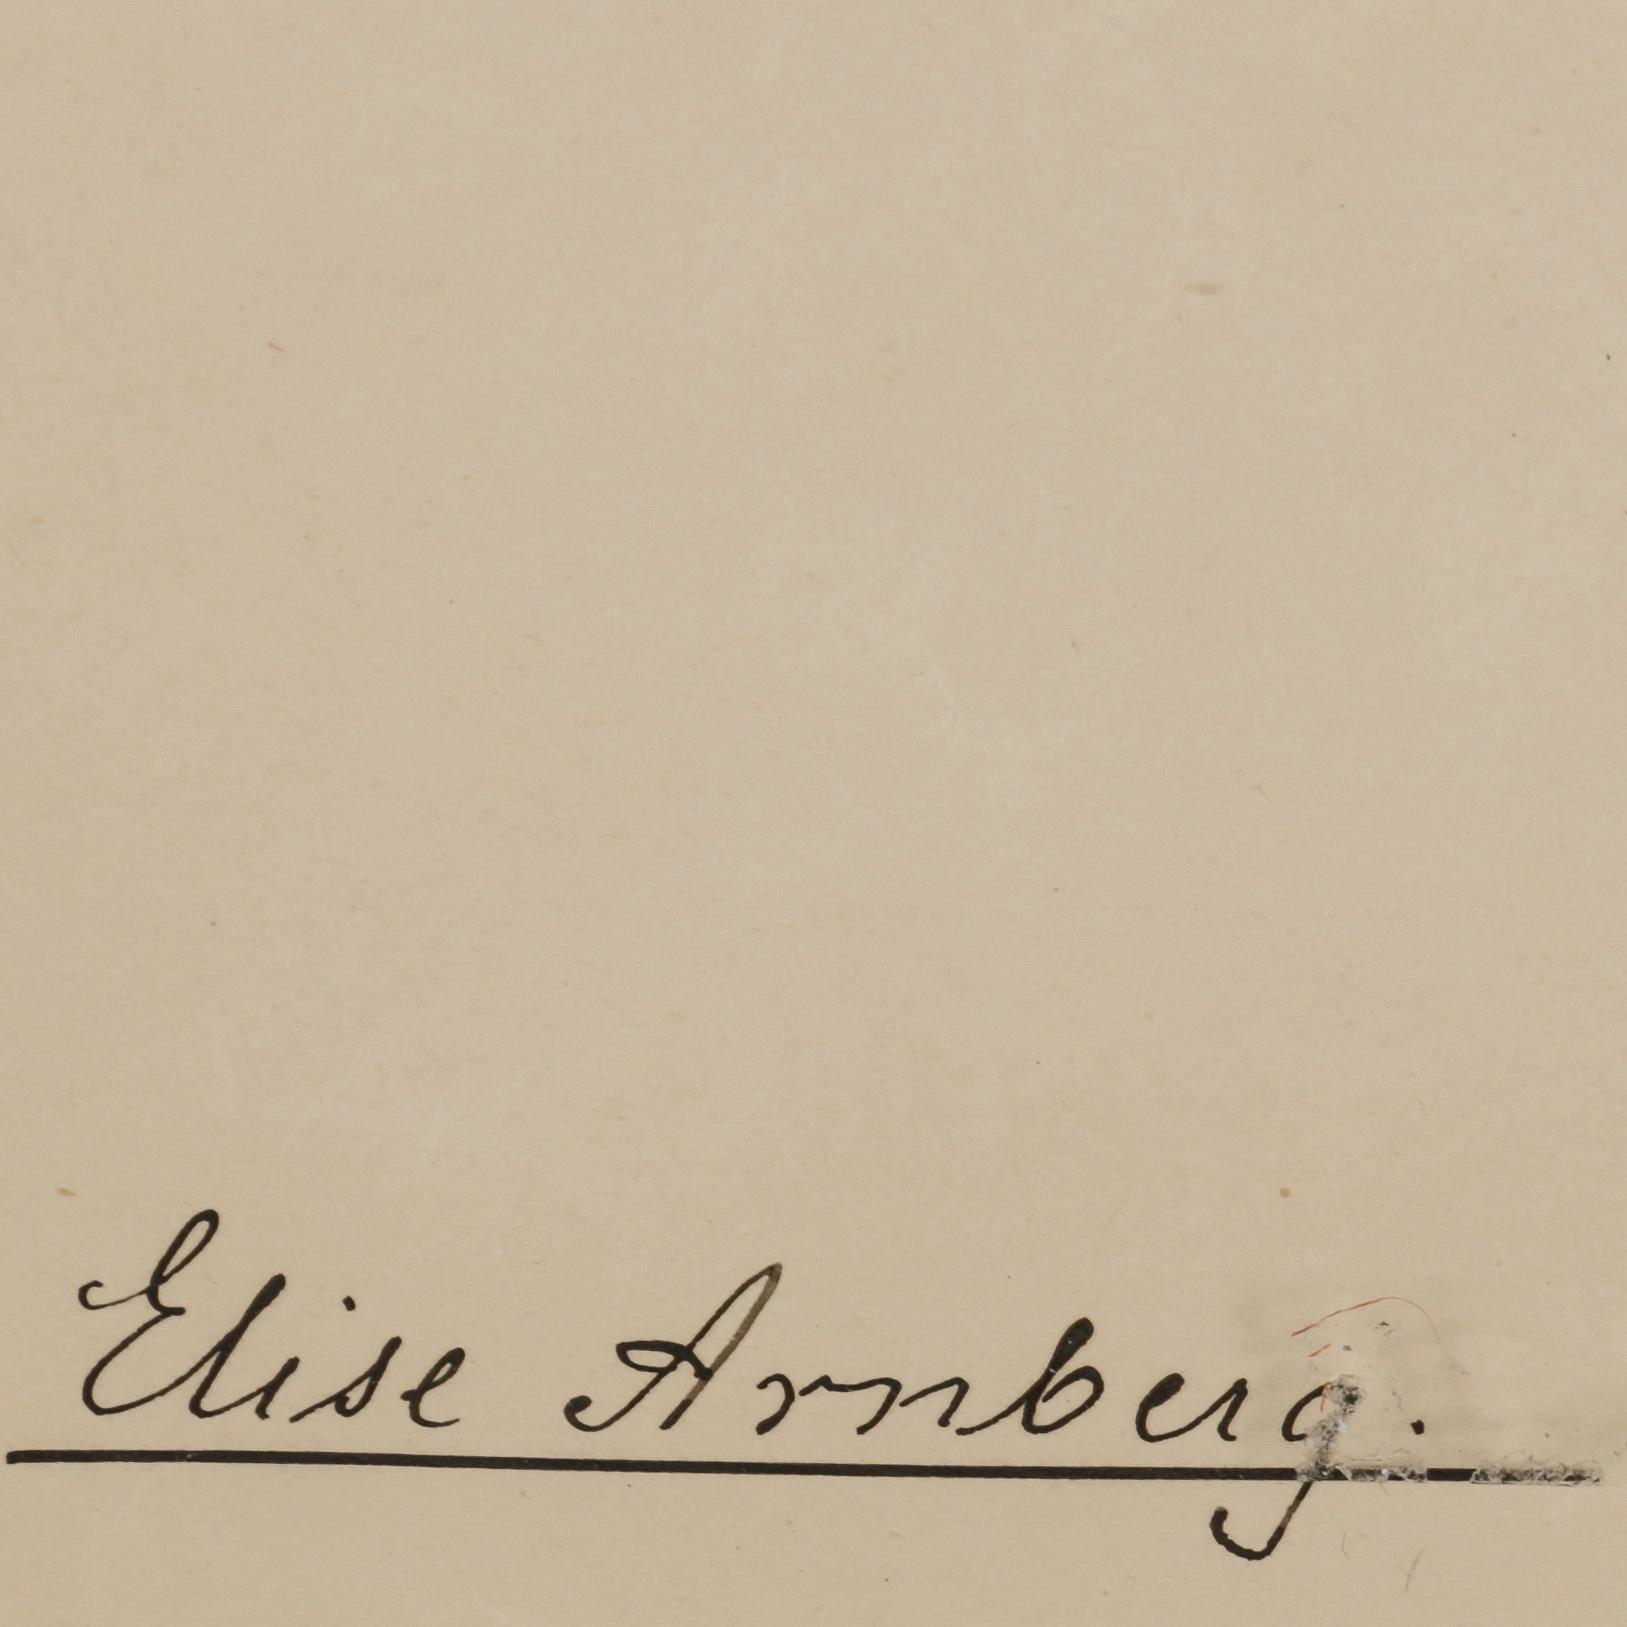 Elise Arnberg.